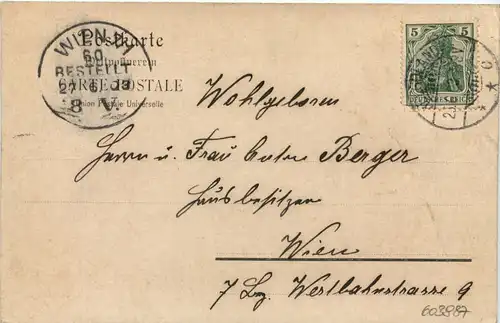 Postkarte
Weltpostverein
CARTE POSTALE
Union Postale Universelle
WIEN
60
BESTELLT
8 V.
5 5
DEUTSCHES REICH
Wohlgeboren
Herrn u. Frau Anton Berger
Hausbesitzer
Wien
7 Bez. Westbahnstrasse 9
603887